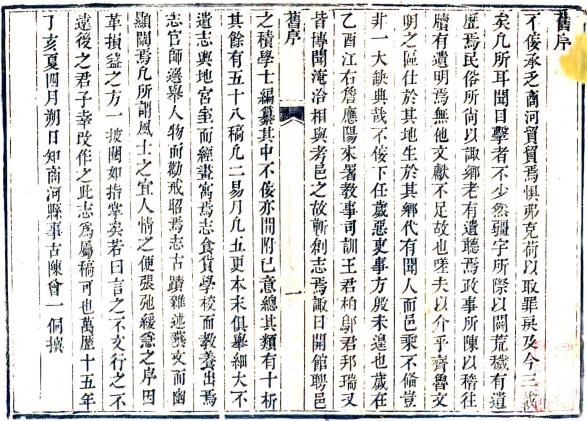 舊序
不佞承乏商河貿貿焉惧弗克荷以取罪戾及今三載
矣凡所耳聞目擊者不少然疆宇所際以闢荒穢有遺
歷焉民俗所尚以諏鄉老有遺聽焉政事所陳以稽往
牘有遺明焉無他文獻不足故也嗟夫以介乎齊魯文
明之區仕於其地生於其鄉代有聞人而邑乘不俻豈
非一大缺典哉不佞下任歲惡吏事方殷未遑也歲在
乙酉江右詹應陽來署教事司訓王君柏鄔君邦瑞又
皆博聞淹洽相與考邑之故斬創志焉諏日開館聘邑
舊序
一
之積學士編纂其中不佞亦間附已意總其類有十析
其餘有五十八稿凡二易月凡五更本末俱舉細大不
遺志輿地宮室而經畫寓焉志食貨學校而教養出焉
志官師選舉人物而勸戒昭焉志古蹟雜述藝文而幽
顯闡焉凡所謂風土之宜人情之便張弛緩急之序因
革損益之方一披閱如指掌矣若曰言之不文行之不
遠後之君子幸改作之此志為屬稿可也萬曆十五年
丁亥夏四月朔日知商河縣事古陳曾一侗撰